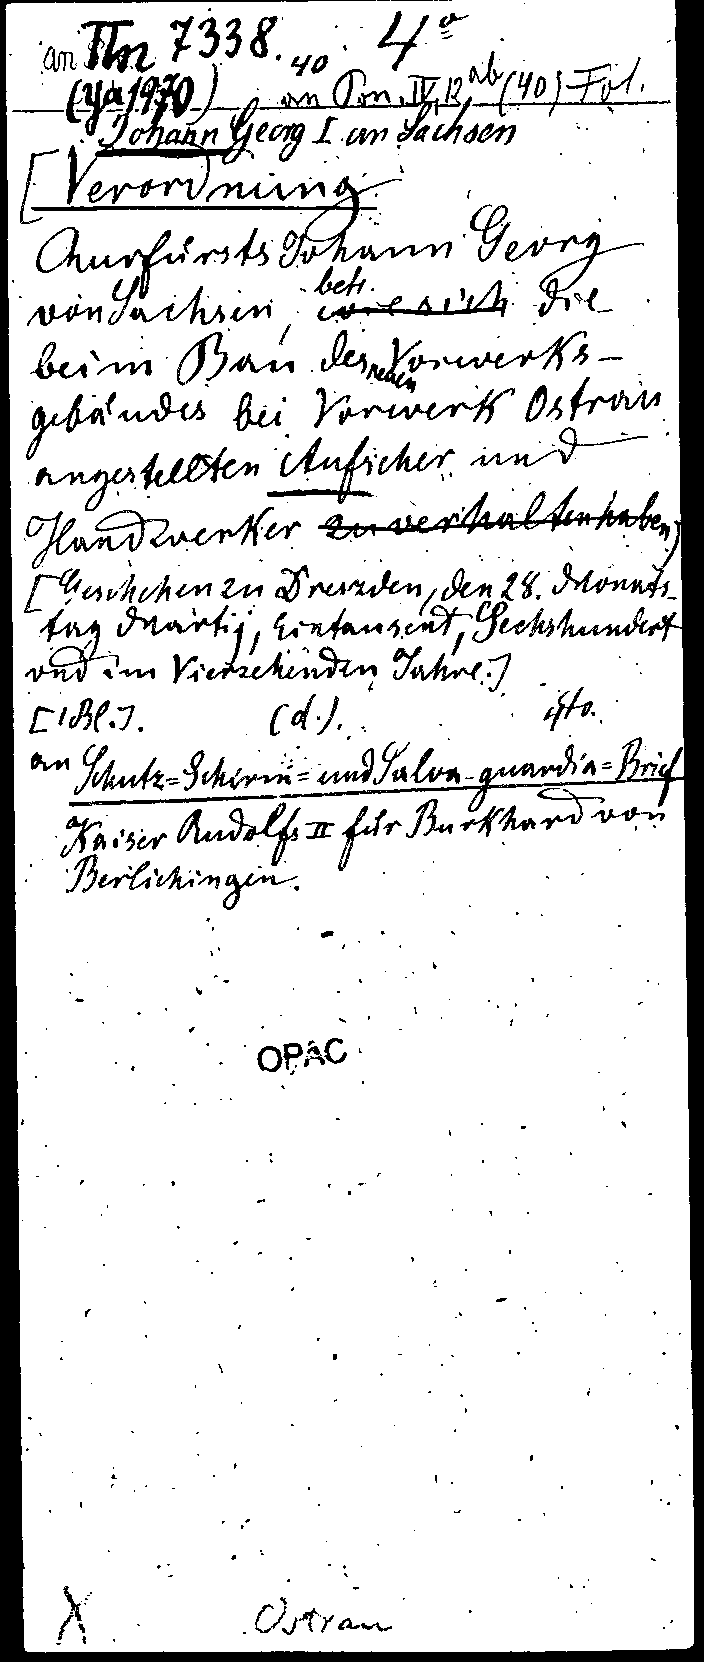 an IIn 7338. 40. 4°
(Ya 1970) an Pon. IV, 12 ab (40) Fol.
Johann Georg I an Sachsen
[Verordnung
Kurfürsts Johann Georg
von Sachsen, betr. wie sich die
beim Bau des neuen Vorwerks-
gebäudes bei Vorwerk Ostrau
angestellten Aufseher und
Handwerker zu verhalten haben)
[Geschehen zu Dreszden, den 28. Monats-
tag Martij, Eintausent, Sechshundert
vnd im Vierzehenden Jahre.]
[1 Bl.]. (d.). 4to.
an Schutz=Schirm=und Salva-guardia=Brief
Kaiser Rudolfs II für Burkhard von
Berlichingen.
OPAC
X Ostrau